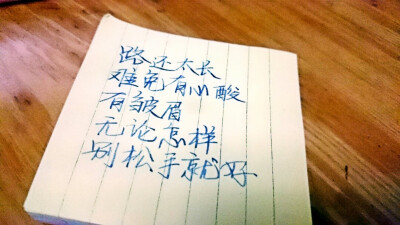 路还太长
难免有心酸
有皱眉
无论怎样
别松手就好